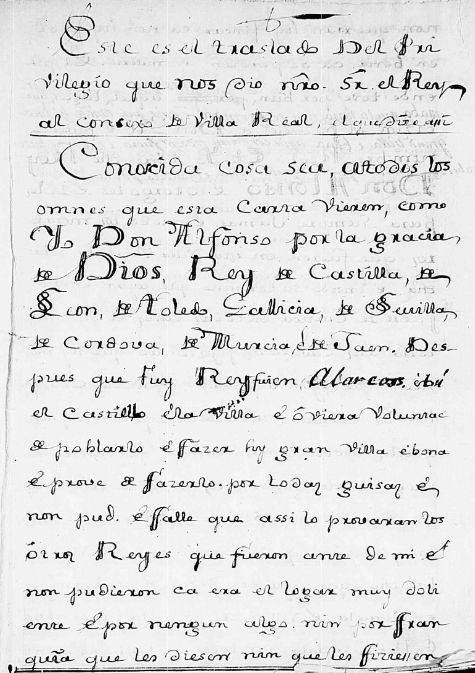 Este es el traslado Del Pri
vilegio que nos dio nrõ. Sr. el Rey
al consexo de Villa Real, el que diz e assi
Conoszida cosa sea, atodos los
omnes que esta Carta Vieren, como
Yo Don Alfonso por la gracia,
de Dios, Rey de Castilla, de
Leon, de Toledo, Gallicia, de Sevilla,
de Cordova, de Murcia, é de Jaen. Des-
pues que fuy Rey fui en Alarcos, é bi
el Castillo é la Villa é ôviera Voluntac
de poblarlo é ffazer hy gran villa é bona
é prove de ffazerlo. por todas guisas é
non pud. é ffalle que assi lo provaran los
ôtros Reyes que fueron ante de mi é
non pudieron ca era el logar muy doli
ente é por nengun algo nin por ffran
quia que les diesen nin que les fizie ssen